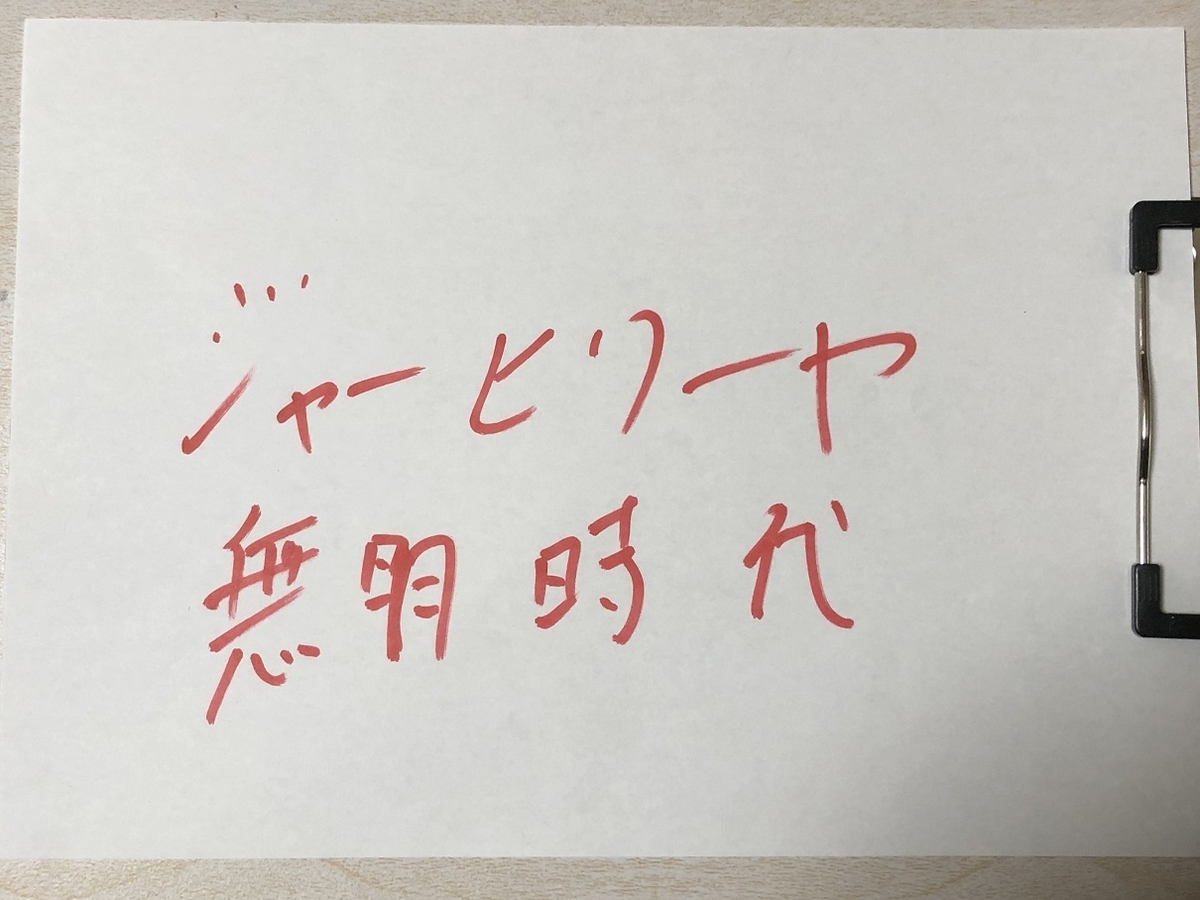 ジャーヒリーヤ
無明時代